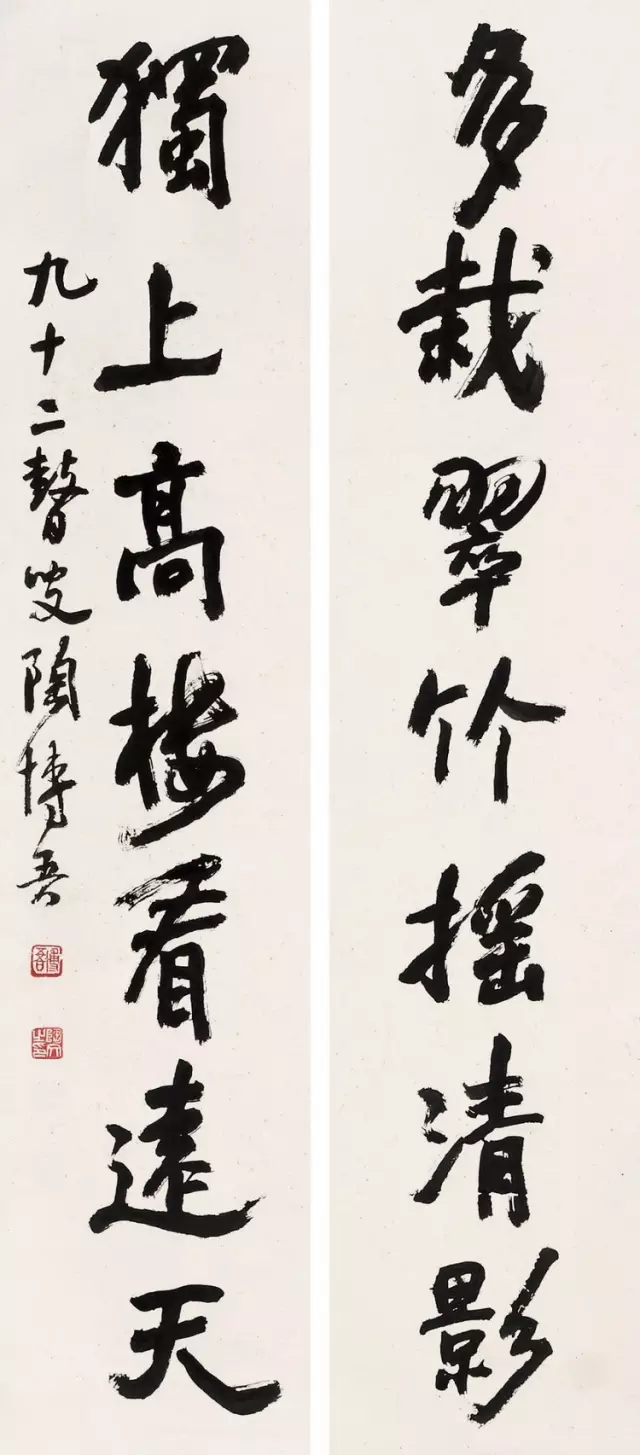 多栽翠竹摇清影
獨上高楼看遠天
九十二瞽叟陶博吾